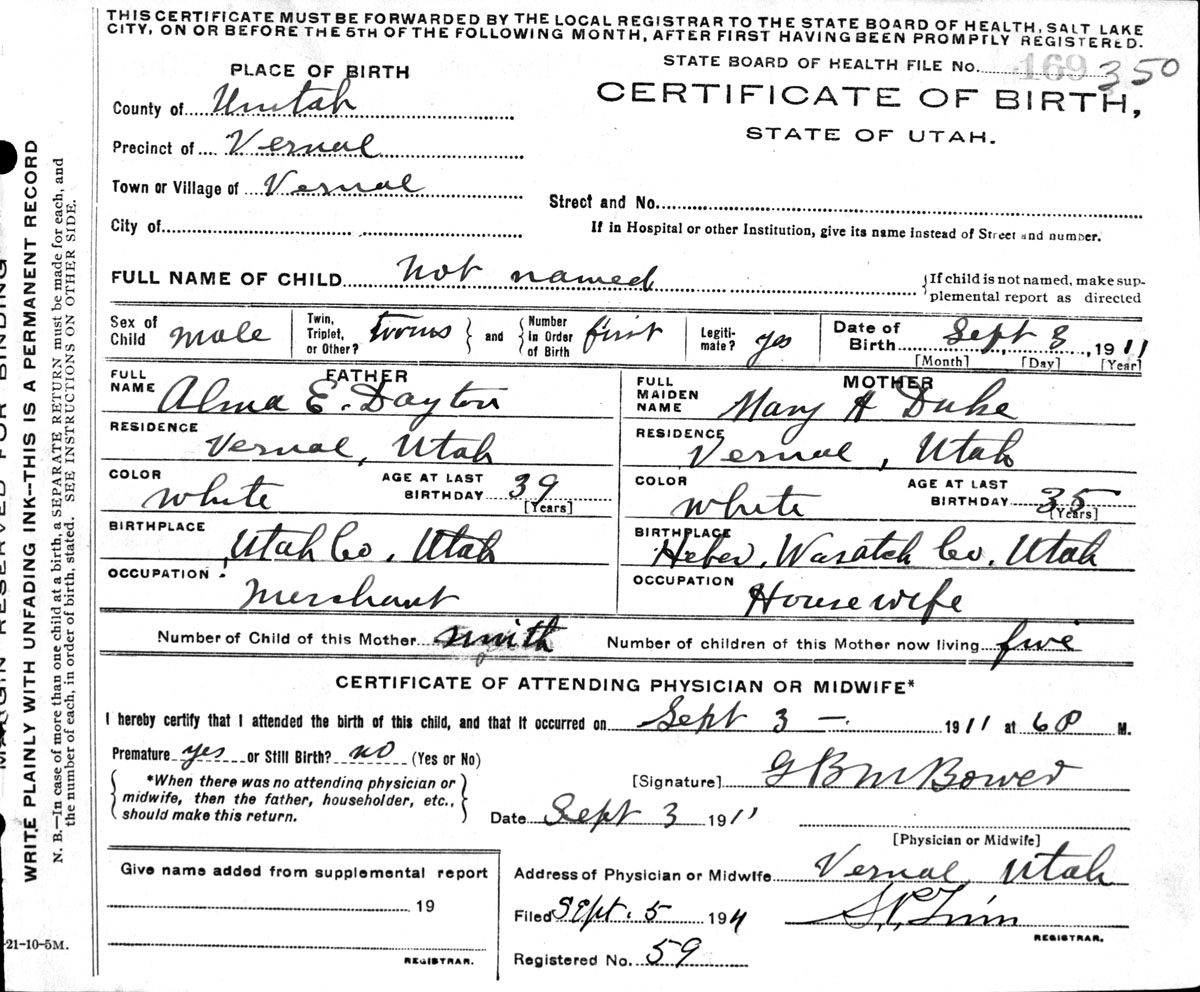 THIS CERTIFICATE MUST BE FORWARDED BY THE LOCAL REGISTRAR TO THE STATE BOARD OF HEALTH, SALT LAKE
CITY, ON OR BEFORE THE 5TH OF THE FOLLOWING MONTH, AFTER FIRST HAVING BEEN PROMPTLY REGISTERED.
STATE BOARD OF HEALTH FILE No. 169 350
CERTIFICATE OF BIRTH,
STATE OF UTAH.
PLACE OF BIRTH
County of Uintah
Precinct of Vernal
Town or Village of Vernal
Street and No.
City of
If in Hospital or other Institution, give its name instead of Street and number.
FULL NAME OF CHILD Not named
If child is not named, make sup-
plemental report as directed
Sex of Child male Twin, Triplet, or Other? twins and Number in Order of Birth first Legiti-mate? yes Date of Birth Sept 3, 1911
[Month] [Day] [Year]
FATHER
FULL NAME Alma E. Dayton
RESIDENCE Vernal, Utah
COLOR White AGE AT LAST BIRTHDAY 39
[Years]
BIRTHPLACE Utah Co, Utah
OCCUPATION Merchant
MOTHER
FULL MAIDEN NAME Mary A Duke
RESIDENCE Vernal, Utah
COLOR White AGE AT LAST BIRTHDAY 35
[Years]
BIRTHPLACE Heber, Wasatch Co, Utah
OCCUPATION Housewife
Number of Child of this Mother ninth Number of children of this Mother now living five
CERTIFICATE OF ATTENDING PHYSICIAN OR MIDWIFE*
I hereby certify that I attended the birth of this child, and that it occurred on Sept 3 — 1911 at 6 P M.
Premature yes or Still Birth? no (Yes or No)
*When there was no attending physician or
midwife, then the father, householder, etc.,
should make this return.
[Signature]
Date Sept 3 1911
[Physician or Midwife]
Give name added from supplemental report
19
REGISTRAR.
Address of Physician or Midwife Vernal, Utah
Filed Sept. 5 1911
REGISTRAR.
Registered No. 59
MARGIN RESERVED FOR BINDING
WRITE PLAINLY WITH UNFADING INK--THIS IS A PERMANENT RECORD
N. B.—In case of more than one child at a birth, a SEPARATE RETURN must be made for each, and
the number of each, in order of birth, stated. SEE INSTRUCTIONS ON OTHER SIDE.
-21-10-5M.